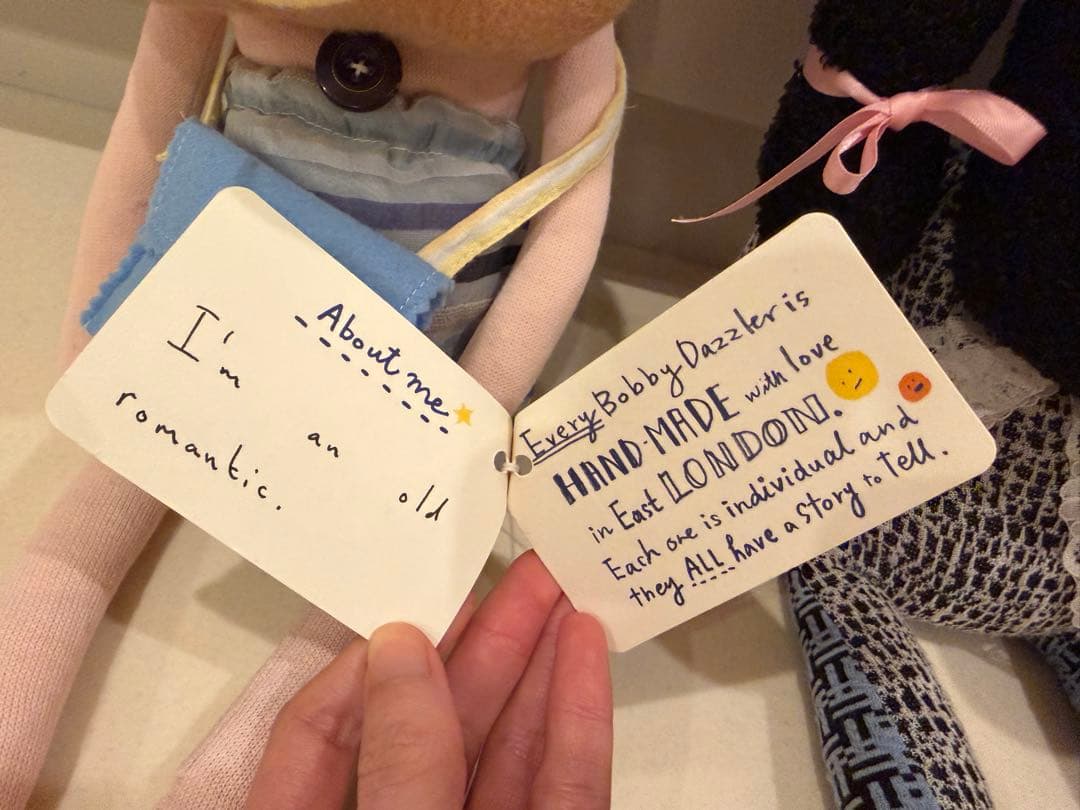 About me
I'm
an
old
romantic.
Every Bobby Dazzler is
HAND-MADE with love
in East LONDON.
Each one is individual and
they ALL have a story to tell.